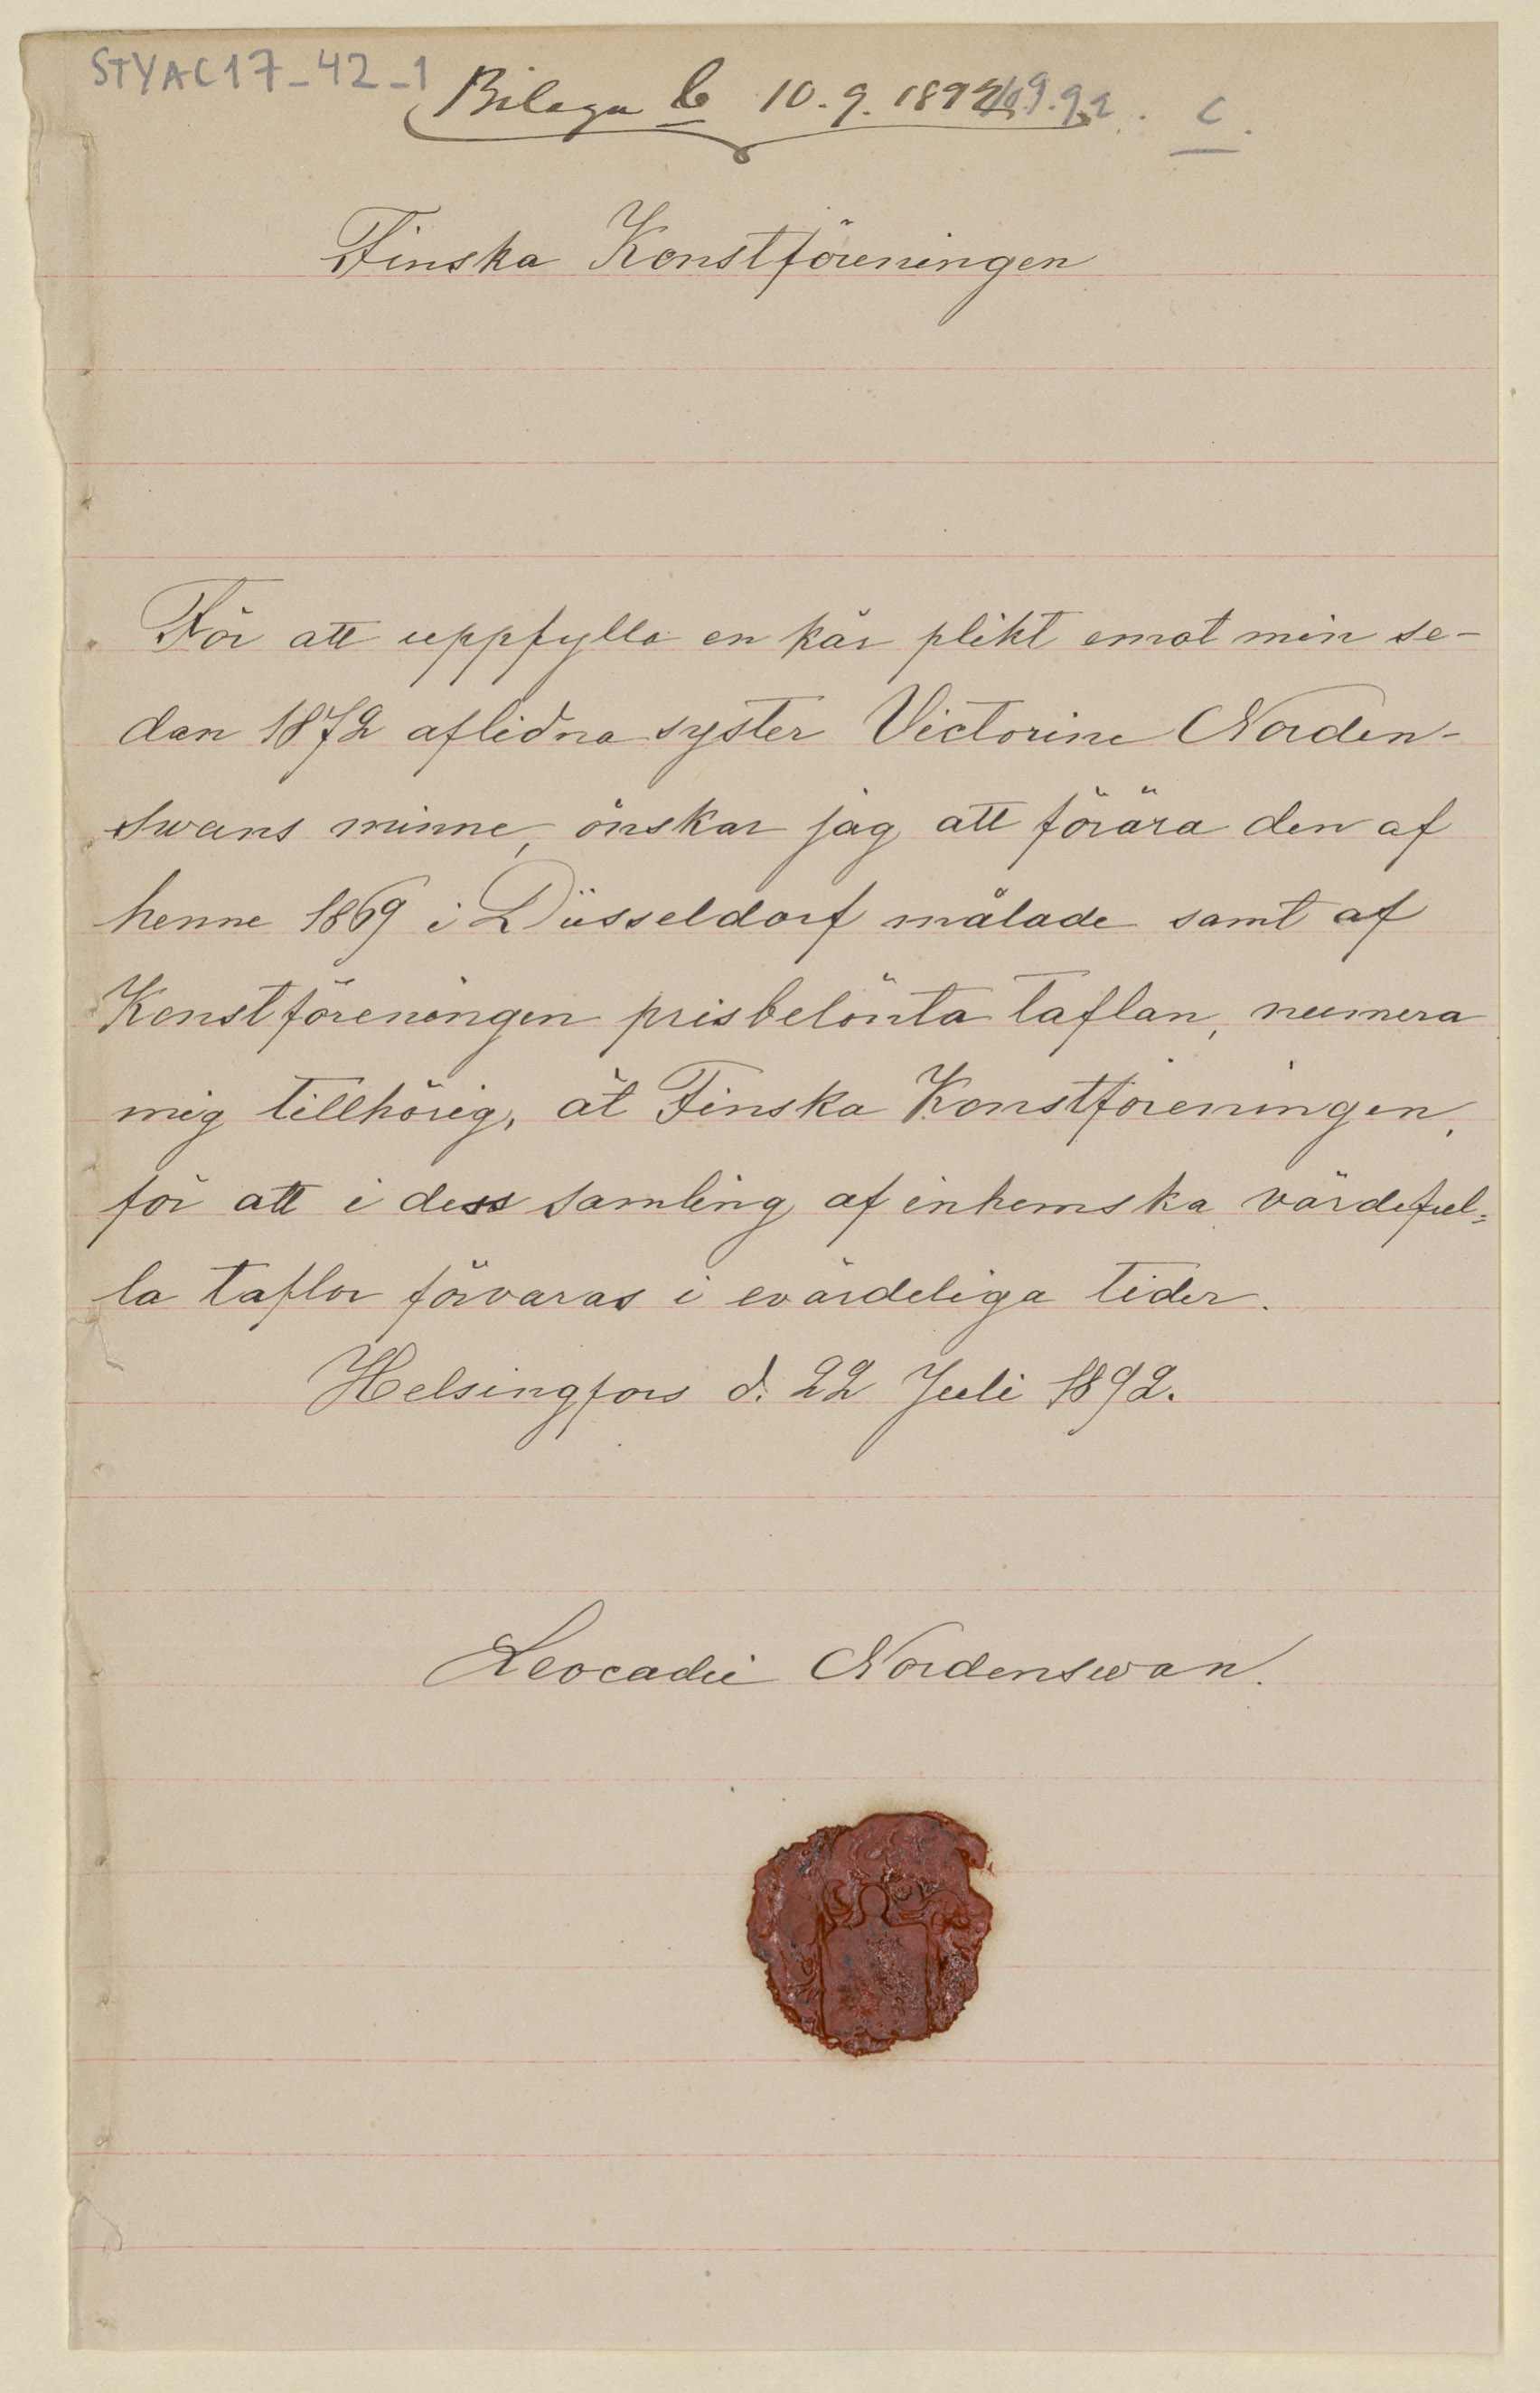 STYAC17-42-1
Bilaga C 10.9.1892 10.9.92. C.
Finska Konstföreningen
För att uppfylla en kär plikt emot min se-
dan 1872 aflidna syster Victorine Norden-
swans minne, önskar jag att förära den af
henne 1869 i Düsseldorf målade samt af
Konstföreningen prisbelönta taflan, numera
mig tillhörig, åt Finska Konstföreningen,
för att i dess samling af inhemska värdeful=
la taflor förvaras i evärdeliga tider.
Helsingfors d. 22 Juli 1892.
Leocadie Nordenswan.